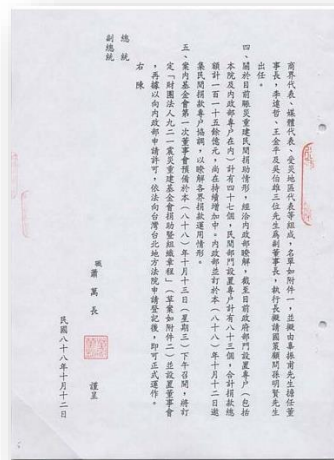 商界代表、媒體代表、受災地區代表等組成,名單如附件一,並擬由辜振甫先生擔任董
事長,李遠哲、王金平及吳伯雄三位先生為副董事長,執行長擬請國策顧問孫明賢先生
出任。
四、關於目前賑災重建民間捐助情形,經洽內政部瞭解,截至目前政府部門設置專戶(包括
本院及內政部專戶在內)計有四十七個,民間部門設置專戶計有八十三個,合計捐款總
額計一百一十五餘億元,尚在持續增加中。內政部並訂於本(八十八)年十月十二日邀
集民間捐款專戶協調,以瞭解各界捐款運用情形。
五、案內基金會第一次董事會預備於本(八十八)年十月十三日(星期三)下午召開,將訂
定「財團法人九二一震災重建基金會捐助暨組織章程」(草案如附件二)並設置董事會
,再據以向內政部申請許可,依法向台灣台北地方法院申請登記後,即可正式運作。
右 陳
總 統
副總統
職 蕭 萬 長 謹呈
民國八十八年十月十二日